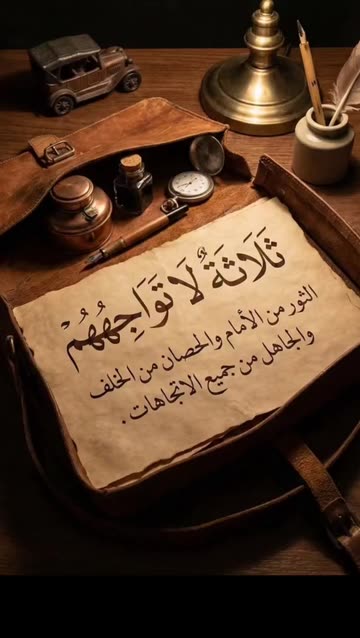 ثَلَاثَةٌ لَا تَوَاجِهُهُمْ
الثور من الأمام والحصان من الخلف
والجاهل من جميع الاتجاهات.